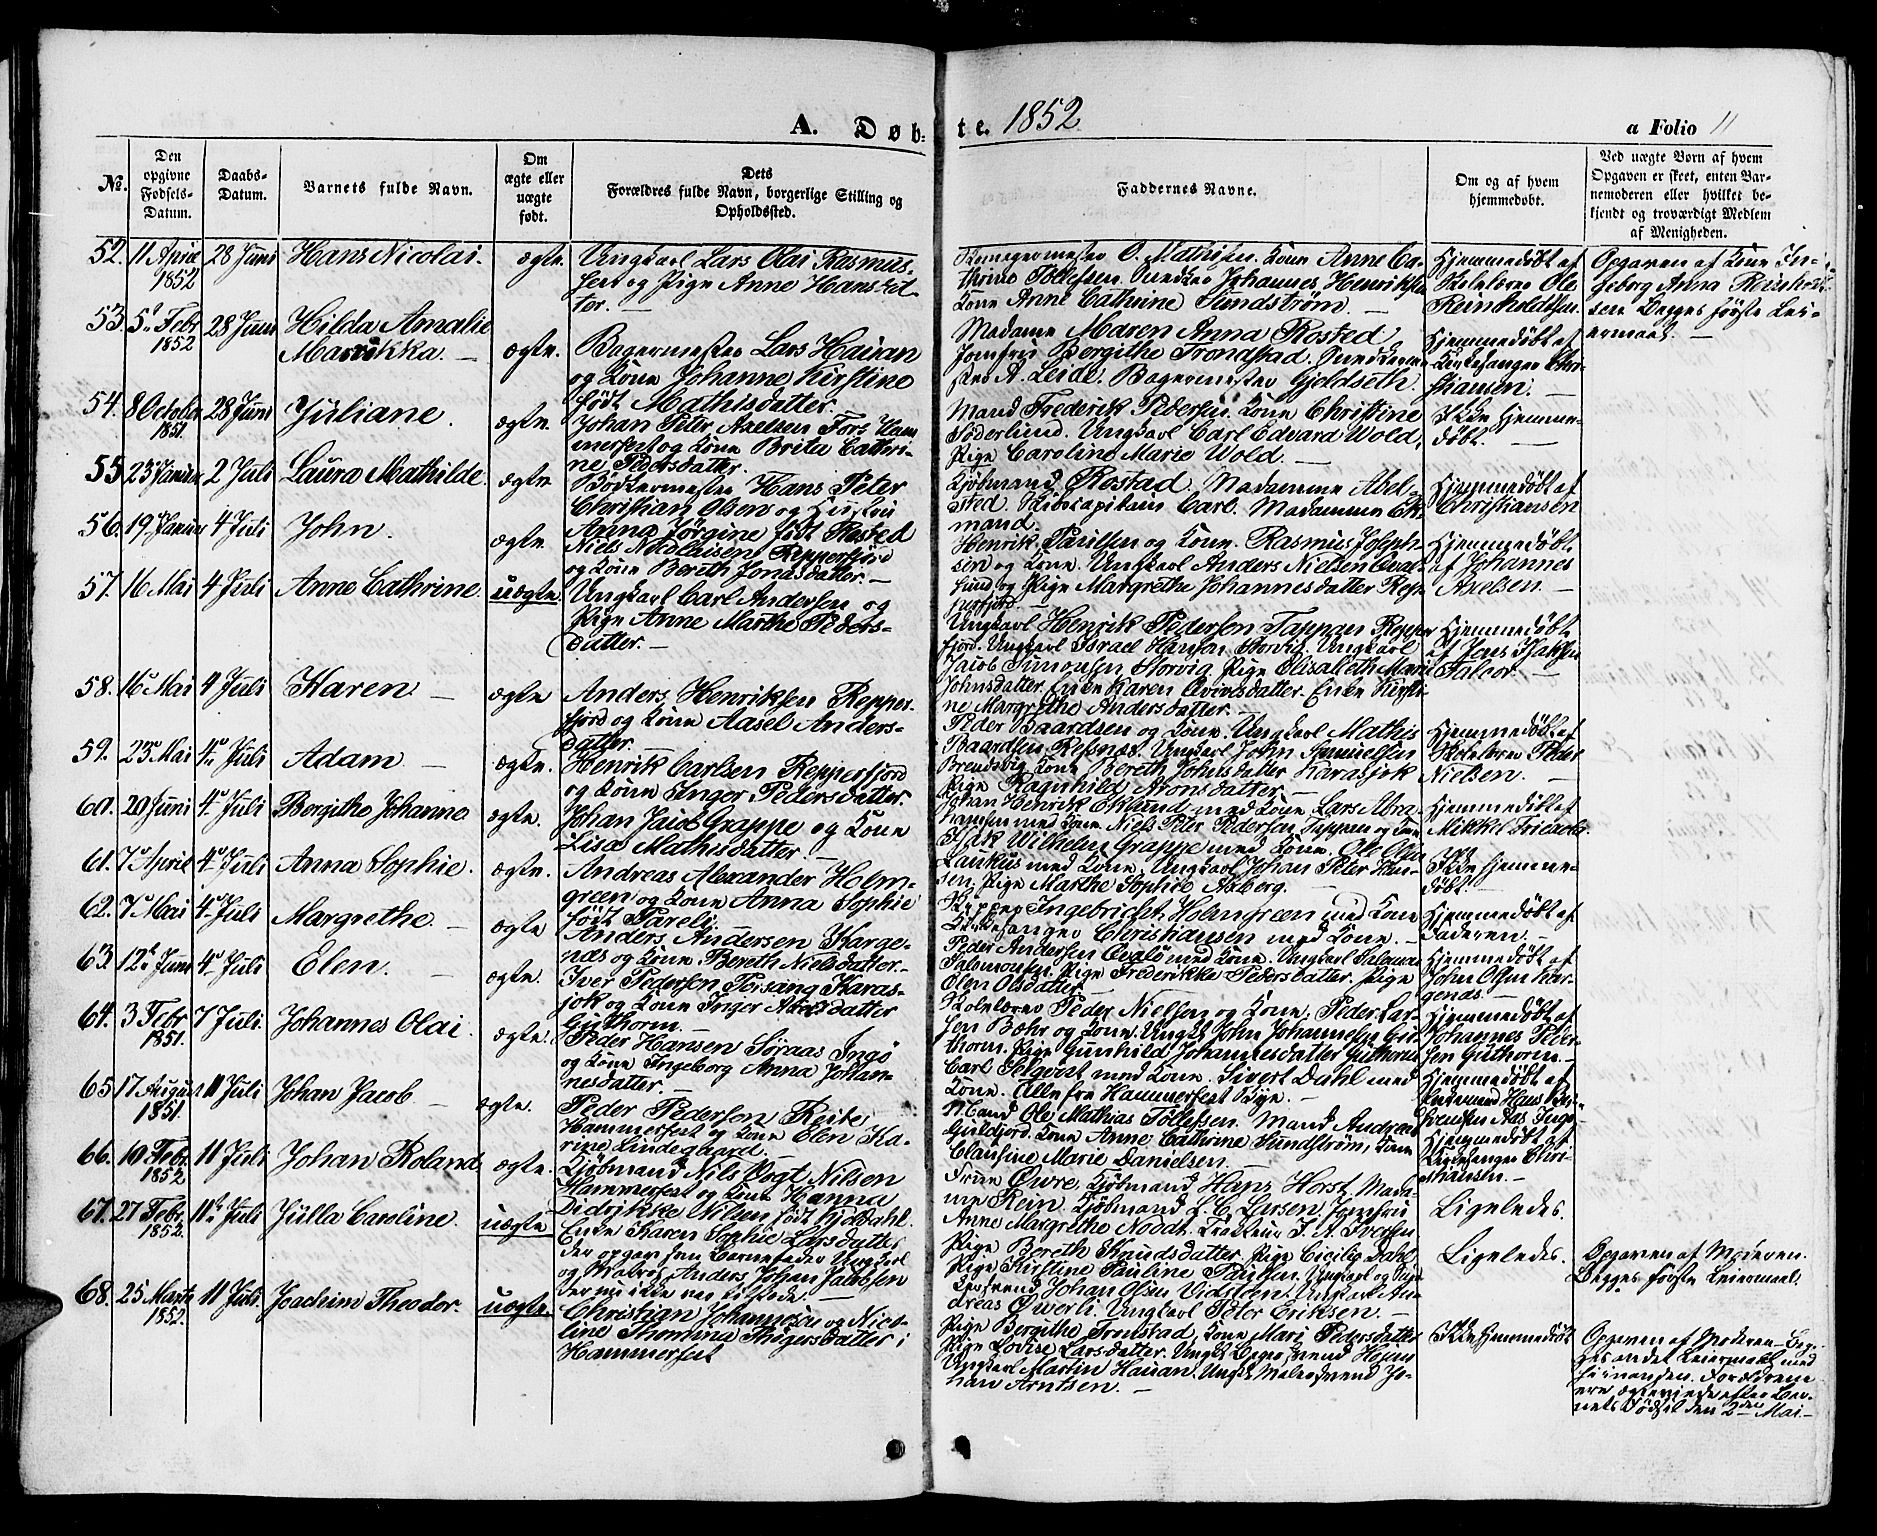 A. Døb-
te. 1852
a Folio 11
No.
Den opgivne Fødsels-Datum.
Daabs-Datum.
Barnets fulde Navn.
Om ægte eller uægte født.
Dets
Forældres fulde Navn, borgerlige Stilling og Opholdssted.
Faddernes Navne.
Om og af hvem hjemmedøbt.
Ved uægte Børn af hvem Opgaven er skeet, enten Barnemoderen eller hvilket bekjendt og troværdigt Medlem af Menigheden.
52. 11 April 1852 28 Juni Hans Nicolai. ægte. Ungkarl Lars Olai Rasmus-
sen og Pige Anne Hansdat-
ter. —
Anne Ca-
thrine Tollefsen. Johannes Henriksen
Kone Anne Cathrine Sundstrøm.
Hjemmedøbt af
Skolelærer Ole
Reinholdtsen.
Opgaven af Kone In-
geborg Anna Reinholt-
sen Begges første Lei-
ermaal. —
53. 5 Febr 1852 28 Juni Hilda Amalie
Marikka. — ægte. Bagermester Lars Hauan
og Kone Johanne Kirstine
født Mathisdatter.
Madame Maren Anna Rosted
Jomfru Bergithe Tronstad.
A. Leide. Bagermester Gjeldseth.
Hjemmedøbt af
Kirkesanger Chri-
stiansen. —
54. 8 October 1851. 28 Juni Juliane. ægte. Johan Peter Axelsen Fors Ham-
merfest og Kone Brita Cathri-
ne Pedersdatter.
Mand Frederik Pedersen. Kone Christine
Søderlund. Ungkarl Carl Edvard Wold,
Pige Caroline Marie Wold. —
Ikke Hjemme-
døbt. —
55 23 Januar 2 Juli Laura Mathilde. ægte Bødkermester Hans Peter
Christian Olsen og Hustru
Anna Jørgine født Rosted
Kjøbmand Rostad. Madamme Abel-
sted. Skibscapitain Carl. Madamme Ek-
mand.
Hjemmedøbt af
Christiansen
56. 19 Januar 4 Juli John. ægte. Niels Nicolaisen Repperfjord
og Kone Bereth Jonasdatter. —
Henrik Paulsen og Kone. Rasmus Joseph-
sen og Kone. Ungkarl Anders Nielsen Qval-
sund, og Pige Margrethe Johannesdatter Rep-
perfjord. —
Hjemmedøbt
af Johannes
Axelsen. —
57. 16 Mai 4 Juli Anne Cathrine. uægte Ungkarl Carl Andersen og
Pige Anne Marthe Peders-
datter. —
Ungkarl Henrik Pedersen Tappan Repper-
fjord. Ungkarl Israel Hansen Storvig. Ungkarl
Jacob Simonsen Storvig. Pige Elisabeth Marie
Johnsdatter. Enke Karen Eivindsdatter. Enke Kirsti-
ne Margrethe Andersdatter. —
Hjemmedøbt
af Jens Isaksen
Falcor. —
58. 16 Mai 4 Juli Karen — ægte Anders Henriksen Repper-
fjord og Kone Aasel Anders-
datter.
Peder Baardsen og Kone. Ungkarl Mathis
Baardsen Refsnæs. Ungkarl John Samuelsen
Kone Bereth Johnsdatter Karasjok
Pige Ragnhild Aronsdatter. —
Hjemmedøbt af
Skolelærer Peder
Nielsen. —
59. 23 Mai 4 Juli Adam — ægte. Henrik Carlsen Repperfjord
og Kone Inger Pedersdatter.
Johan Henrik Eklund med Kone Lars Abra-
hamsen med Kone. Niels Peter Pedersen Tappan og Kone
Hjemmedøbt af
Mikkel
60. 20 Juni 4 Juli Bergithe Johanne ægte. Johan Jacob Grappe og Kone
Lisa Mathisdatter. —
Isak Wilhelm Grappe med Kone. Ole Olsen
Lauklus med Kone. Ungkarl Johan Peter Han-
sen, Pige Marthe Sophie Asberg.
Ikke Hjemme-
døbt.
61. 7 April 4 Juli Anna Sophie. ægte. Andreas Alexander Holm-
green og Kone Anna Sophie
født Pareli.
Skipper Ingebricht Holmgreen med Kone
Kirkesanger Christiansen med Kone. —
Hjemmedøbt af
Faderen. —
62. 7 Mai 4 Juli Margrethe. — ægte Anders Andersen Karge-
næs og Kone Bereth Nielsdatter. —
Peder Andersen Qvalø med Kone. Ungkarl Salomon
Salomonsen. Pige Frederikke Pedersdatter. Pige
Elen Olsdatter. —
Hjemmedøbt af
John Olsen Kar-
genæs. —
63. 12 Juni 4 Juli Elen. — ægte. Iver Pedersen Porsang Karas-
jok og Kone Inger Akselsdatter
Guthorm. —
Skolelærer Peder Nielsen og Kone, Peder Lar-
sen Bohr og Kone. Ungk. John Johannesen Gu-
thorm. Pige Gunhild Johannesdatter Guthorm
Hjemmedøbt af
Johannes Peder-
sen Guthorm. —
64. 3 Febr 1851. 7 Juli. Johannes Olai. ægte. Peder Hansen Søraas Ingø
og Kone Ingeborg Anna Johan-
nesdatter —
Carl Selqvist med Kone. Sivert Dahl med
Kone. Alle fra Hammerfest Bye. —
Hjemmedøbt af
65 17 August 1851. 11 Juli Johan Jacob — ægte. Peder Pedersen Reite
Hammerfest og Kone Elen Ka-
rine Lindegaard. —
Mand Ole Mathias Tollefsen. Mand Andreas
Guldfjord. Kone Anne Cathrine Sundstrøm, Kone
Clausine Marie Danielsen. —
Hjemmedøbt af
Kirkesanger Chri-
stiansen. —
66. 10 Febr. 1852 11 Juli Johan Roland ægte. Kjøbmand Nils Vogt Nilsen
Hammerfest og Kone Hanna
Didrikke Nilsen født Kjeldahl.
Frue Øwre, Kjøbmand Hans Horst, Mada-
me Rein. Kjøbmand L. C. Larsen, Jomfru
Anne Margrethe Noddt. J. A. Iversen
Ligeledes.
67. 27 Febr. 1852. 11 Juli Julla Caroline. uægte Enke Karen Sophie Larsdatter
der opgav som Barnefader Ungkarl
og Anders Johan Jacobsen
der nu ikke var tilstede. —
Pige Bereth Knudsdatter. Pige Cicilie Dahl
Pige Kirstine Pauline Paulsen. Ungkarl og
Johan Olsen Vidsteen. Ungkarl An-
dreas Øwerli. Ungkarl Peter Eriksen. —
Ligeledes.
Opgaven af Moderen.
Begges første Leiermaal.
68. 25 Marts 1852. 11 Juli Joachim Theodor. uægte. Christian Johannesen og Nico-
line Thomina Thigersdatter i
Hammerfest
Pige Bergithe Tronstad, Kone Mari Pedersdatter
Pige Lovise Larsdatter. Ungk. Hans
Ungkarl Martin Hauan. Ungk. Malersvend Jo-
han Arntsen. —
Ikke Hjemmedøbt
Opgaven af Moderen. Beg-
ges andet Leiermaal med
hinanden. Forældrene
ere ægteviede efter Bar-
nets Fødsel den 2den Mai —